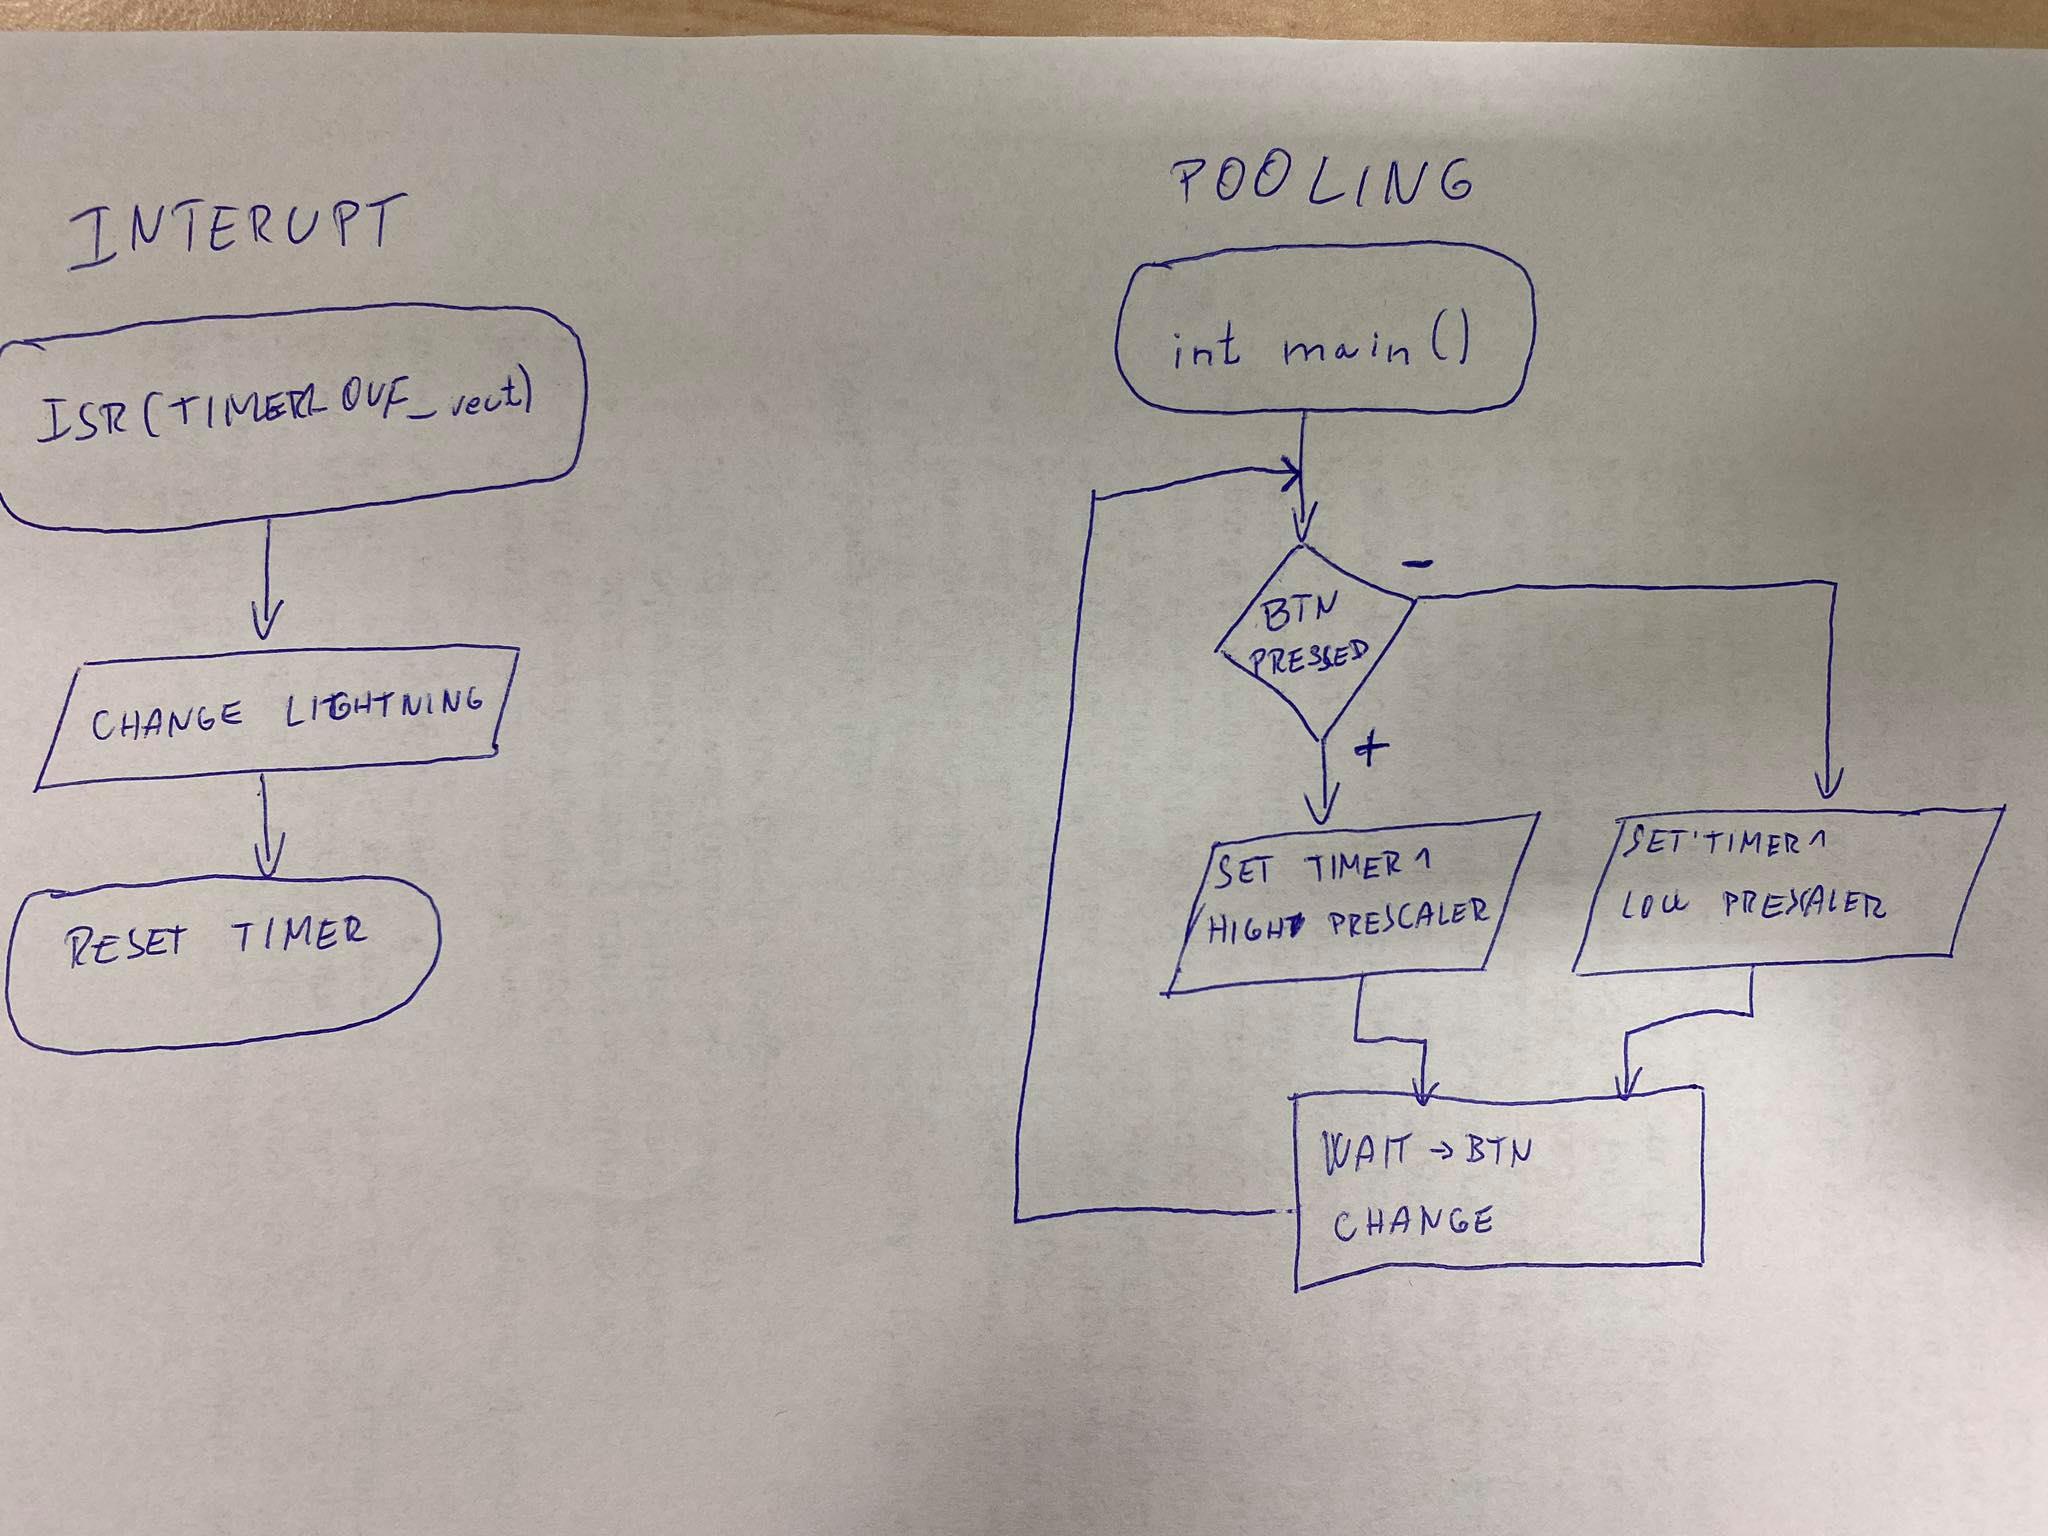 INTERUPT
ISR(TIMER1_OVF_vect)
CHANGE LIGHTNING
RESET TIMER
POOLING
int main()
BTN
PRESSED
-
+
SET TIMER1
HIGH PRESCALER
SET TIMER1
LOW PRESCALER
WAIT → BTN
CHANGE